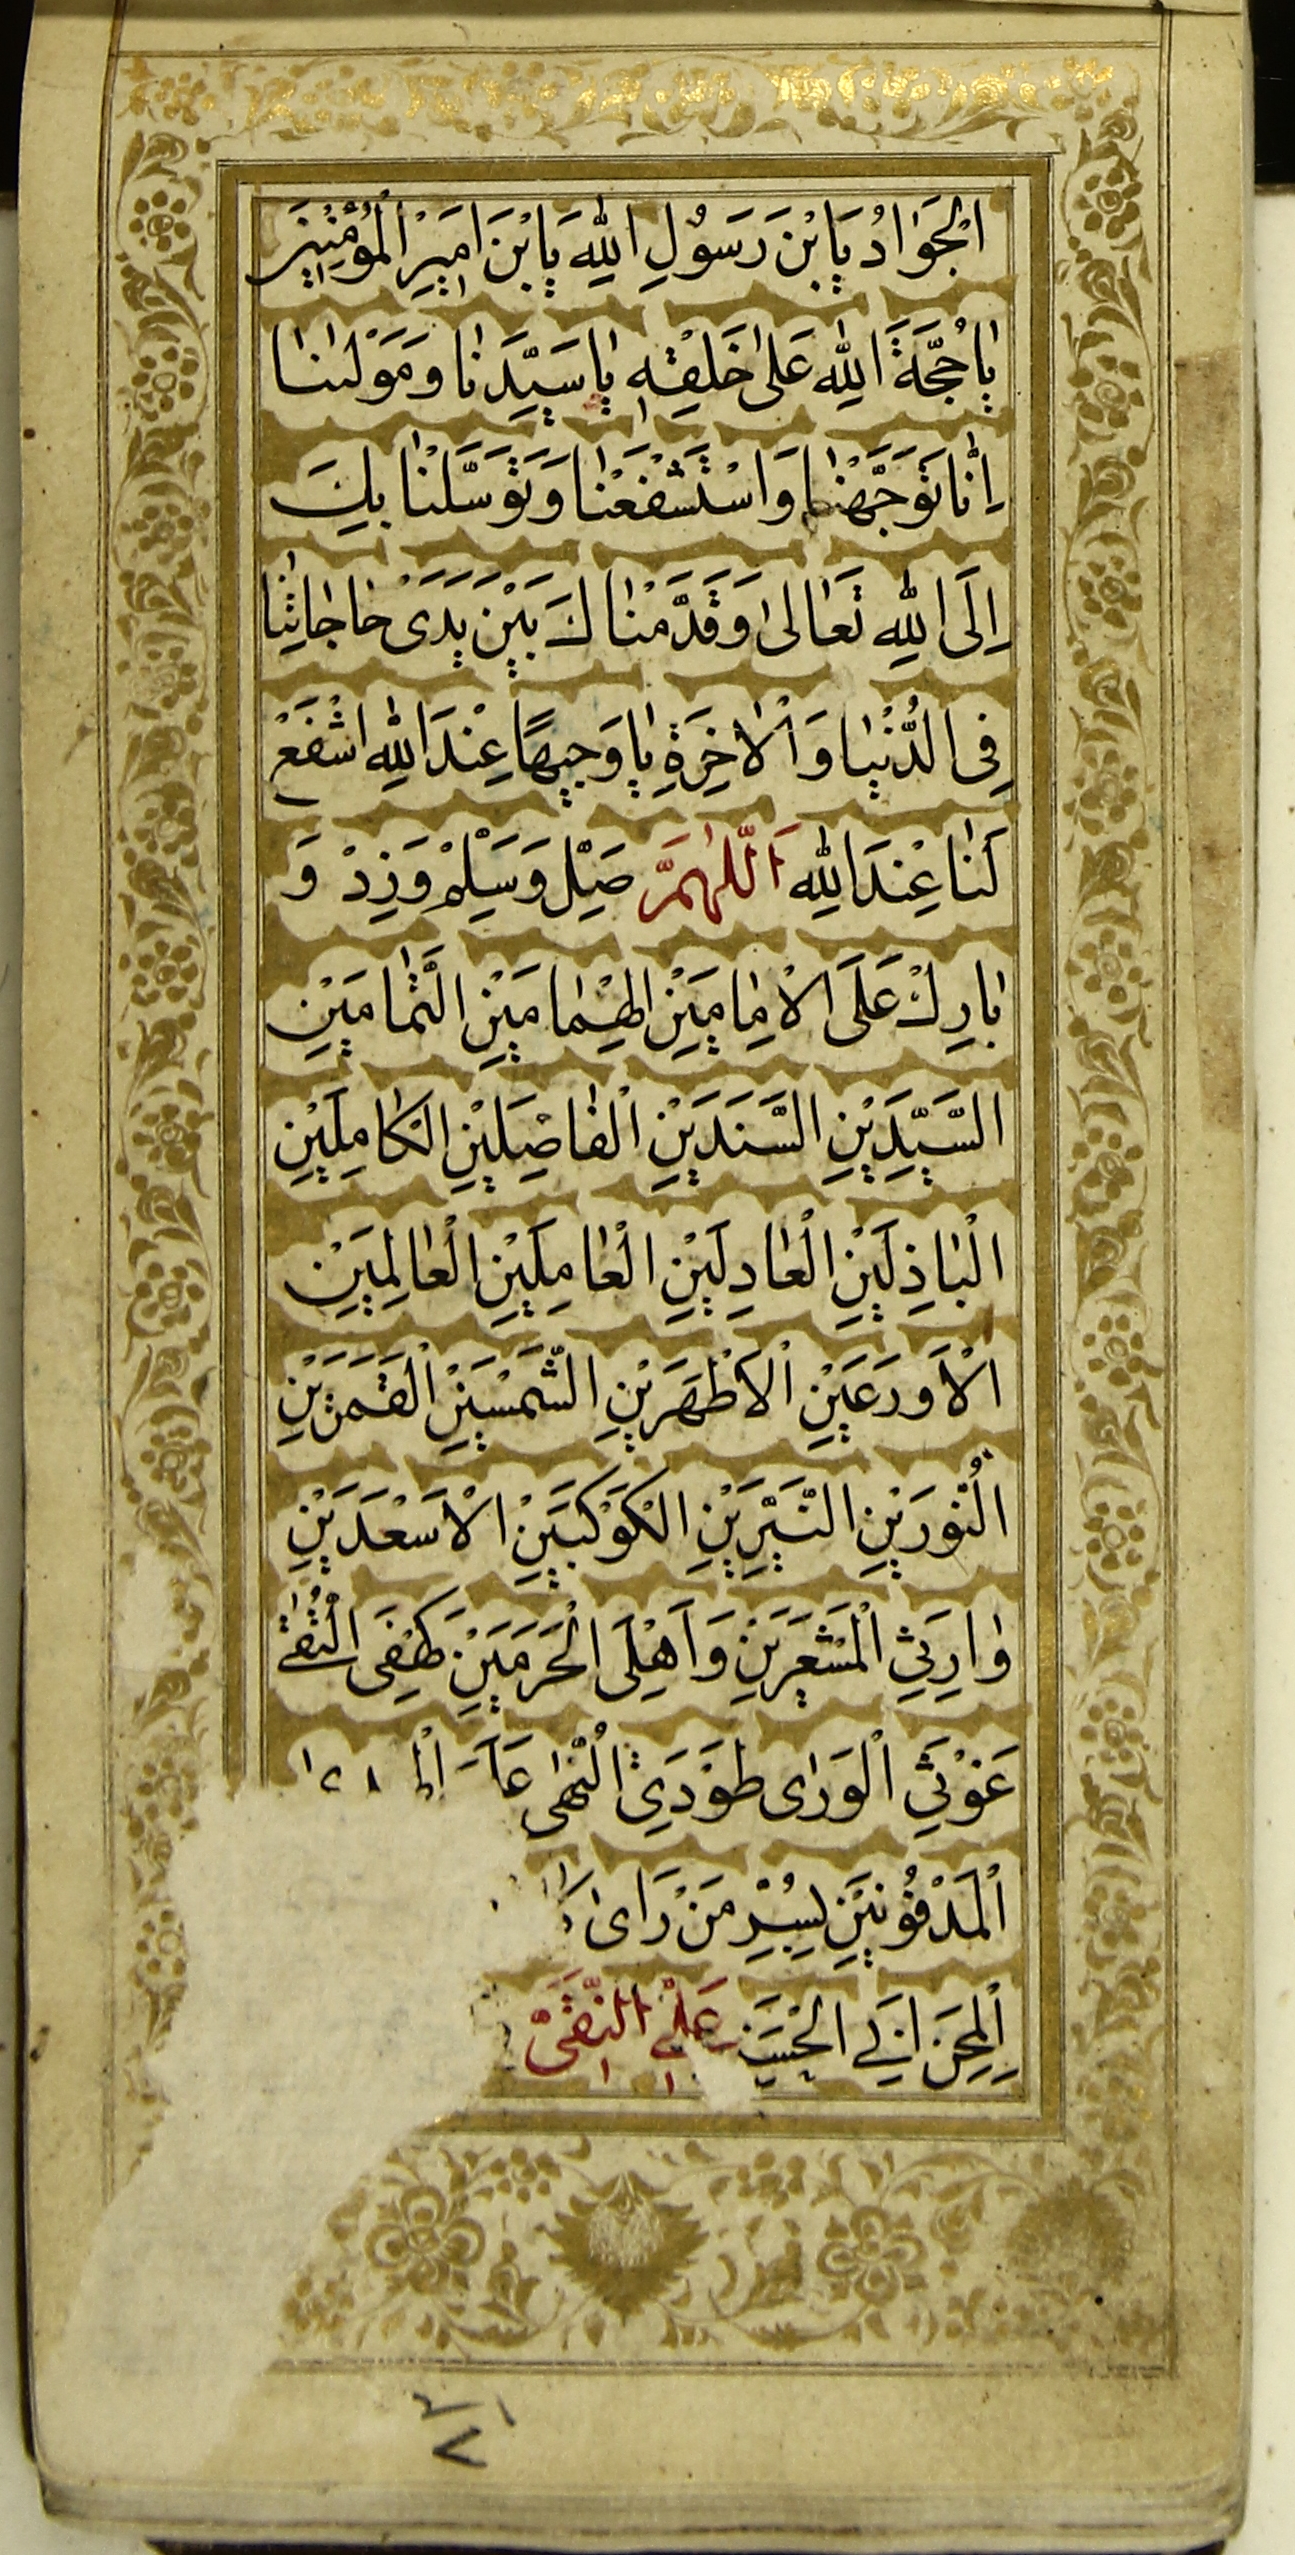 الْجَوَادُ يَابْنَ رَسُولِ اللهِ يَابْنَ اَمِيرِ الْمُؤْمِنِينَ
يَا حُجَّةَ اللهِ عَلٰى خَلْقِهِ يَا سَيِّدَنَا وَمَوْلٰينَا
اِنَّا تَوَجَّهْنَا وَاسْتَشْفَعْنَا وَتَوَسَّلْنَا بِكَ
اِلَى اللهِ تَعَالٰى وَقَدَّمْنَاكَ بَيْنَ يَدَىْ حَاجَاتِنَا
فِى الدُّنْيَا وَالْاٰخِرَةِ يَا وَجِيهًا عِنْدَ اللهِ اشْفَعْ
لَنَا عِنْدَ اللهِ اَللّٰهُمَّ صَلِّ وَسَلِّمْ وَزِدْ وَ
بَارِكْ عَلَى الْاِمَامَيْنِ الْهُمَامَيْنِ التَّمَامَيْنِ
السَّيِّدَيْنِ السَّنَدَيْنِ الْفَاضِلَيْنِ الْكَامِلَيْنِ
الْبَاذِلَيْنِ الْعَادِلَيْنِ الْعَامِلَيْنِ الْعَالِمَيْنِ
الْاَوْرَعَيْنِ الْاَظْهَرَيْنِ الشَّمْسَيْنِ الْقَمَرَيْنِ
النُّورَيْنِ النَّيِّرَيْنِ الْكَوْكَبَيْنِ الْاَسْعَدَيْنِ
وَارِثَىِ الْمَشْعَرَيْنِ وَاَهْلَىِ الْحَرَمَيْنِ كَهْفَىِ التُّقٰى
غَوْثَىِ الْوَرٰى طَوْدَىِ النُّهٰى
الْمَدْفُونَيْنِ بِسُرَّ مَنْ رَاٰى
الْمِحَنِ اَبِى الْحَسَنِ عَلِىٍّ النَّقِىِّ